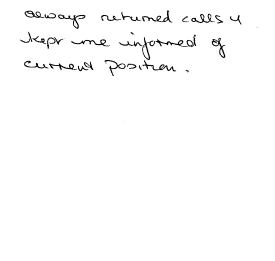 always returned calls &
kept me informed of
current position.